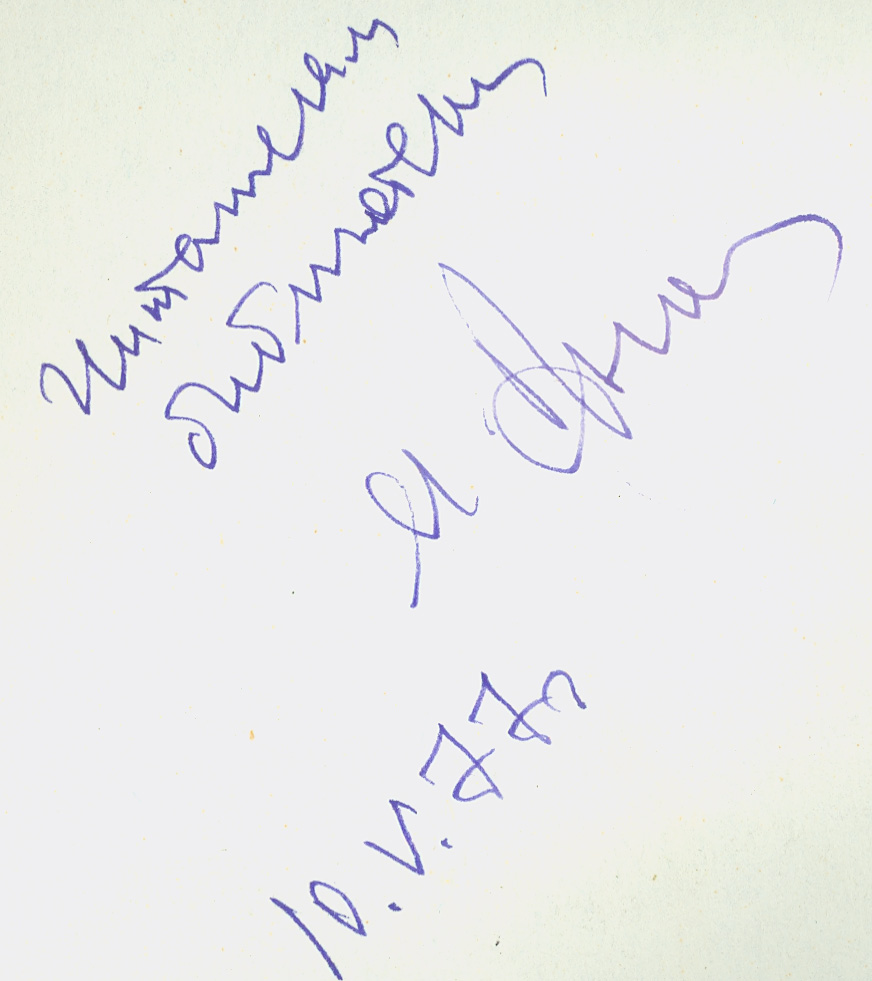 Читателям
библиотеки
10.V.77г